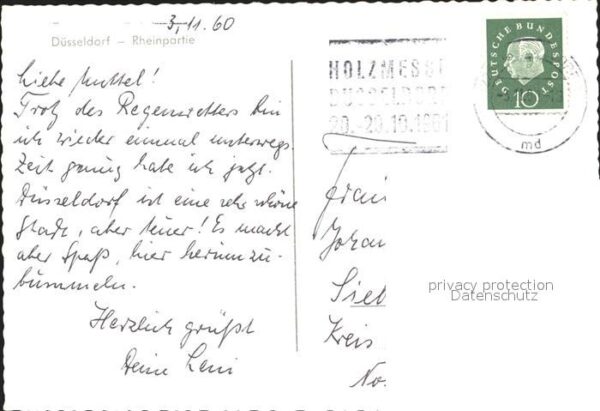 3.11.60
Düsseldorf – Rheinpartie
Liebe Muttel!
Trotz des Regenwetters bin
ich wieder einmal unterwegs.
Zeit genug habe ich jetzt.
Düsseldorf ist eine sehr schöne
Stadt, aber teuer! Es macht
aber Spaß, hier herumzu-
bummeln.
Herzlich grüßt
Deine Leni
HOLZMESSE
DÜSSELDORF
20.-29.10.1961
DEUTSCHE BUNDESPOST
10
md
Frau
Johan
Sieb
Kreis
No
privacy protection
Datenschutz